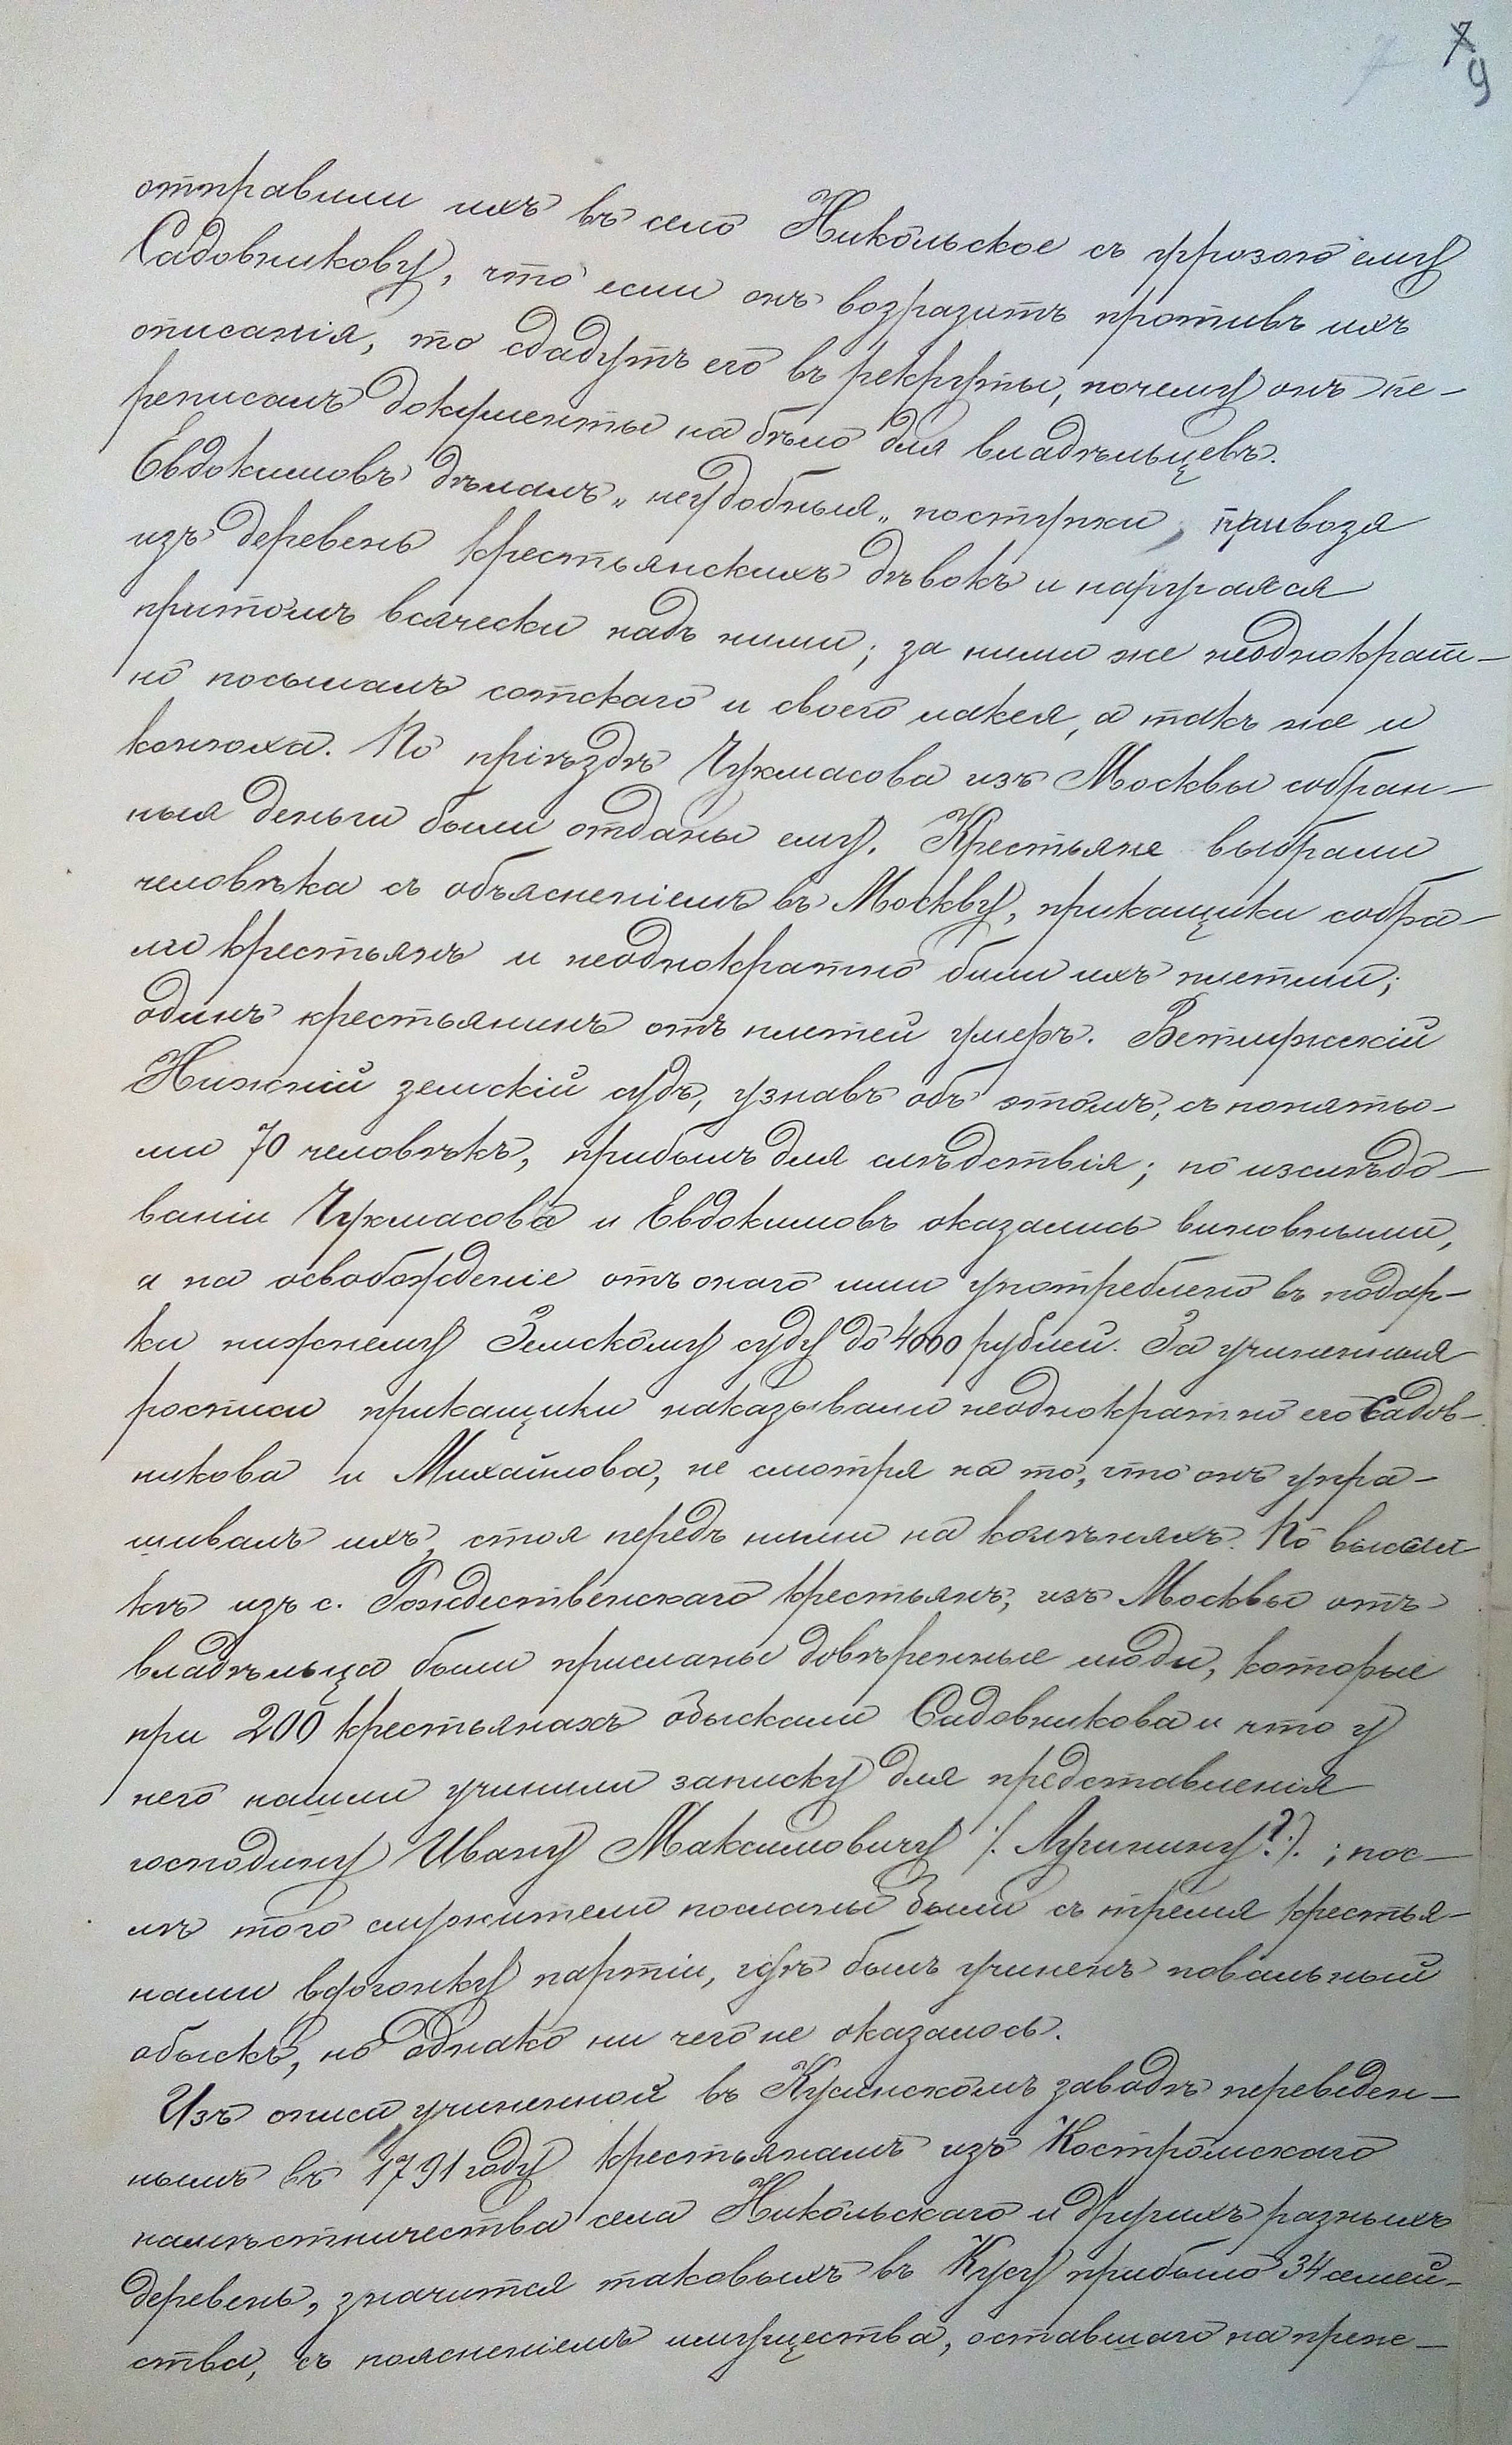 7
9
отправили ихъ въ село Никольское съ угрозою ему
Садовникову, что если онъ возразитъ противъ ихъ
описанія, то сдадутъ его въ рекруты, почему онъ пе-
реписалъ документы на бѣло для владѣльцевъ.
Евдокимовъ дѣлалъ „неудобныя„ поступки, привозя
изъ деревень крестьянскихъ дѣвокъ и наругаяся
притомъ всячески надъ ними; за ними же неоднократ-
но посылалъ сотскаго и своего лакея, а такъ же и
конюха. По пріѣздѣ Чукмасова изъ Москвы собран-
ныя деньги были отданы ему. Крестьяне выбрали
человѣка съ объясненіемъ въ Москву, прикащики собра-
ли крестьянъ и неоднократно били ихъ плетми;
одинъ крестьянинъ отъ плетей умеръ. Ветлужскій
Нижній земскій судъ, узнавъ объ этомъ, съ поняты-
ми 70 человѣкъ, прибылъ для слѣдствія; по изслѣдо-
ваніи Чукмасова и Евдокимовъ оказались виновными,
а на освобожденіе отъ онаго ими употреблено въ подар-
ки нижнему Земскому суду до 4000 рублей. За учиненныя
росписи прикащики наказывали неоднократно его Садов-
никова и Михайлова, не смотря на то, что онъ упра-
шивалъ ихъ, стоя передъ ними на колѣняхъ. По высыл
кѣ изъ с. Рождественскаго крестьянъ, изъ Москвы отъ
владѣльца были присланы довѣренные люди, которые
при 200 крестьянахъ обыскали Садовникова и что у
него нашли учинили записку для представленія
господину Ивану Максимовичу /. Лугинину?/. ; пос-
лѣ того служители посланы были съ тремя крестья-
нами вдогонку партіи, гдѣ былъ учиненъ повальный
обыскъ, но однако ни чего не оказалось.
Изъ описи учиненной въ Кусинскомъ заводѣ переведен-
нымъ въ 1791 году крестьянамъ изъ Костромскаго
намѣстничества села Никольскаго и другихъ разныхъ
деревень, значится таковыхъ въ Кусу прибыло 34 семей-
ства, съ поясненіемъ имущества, оставшаго на преж-